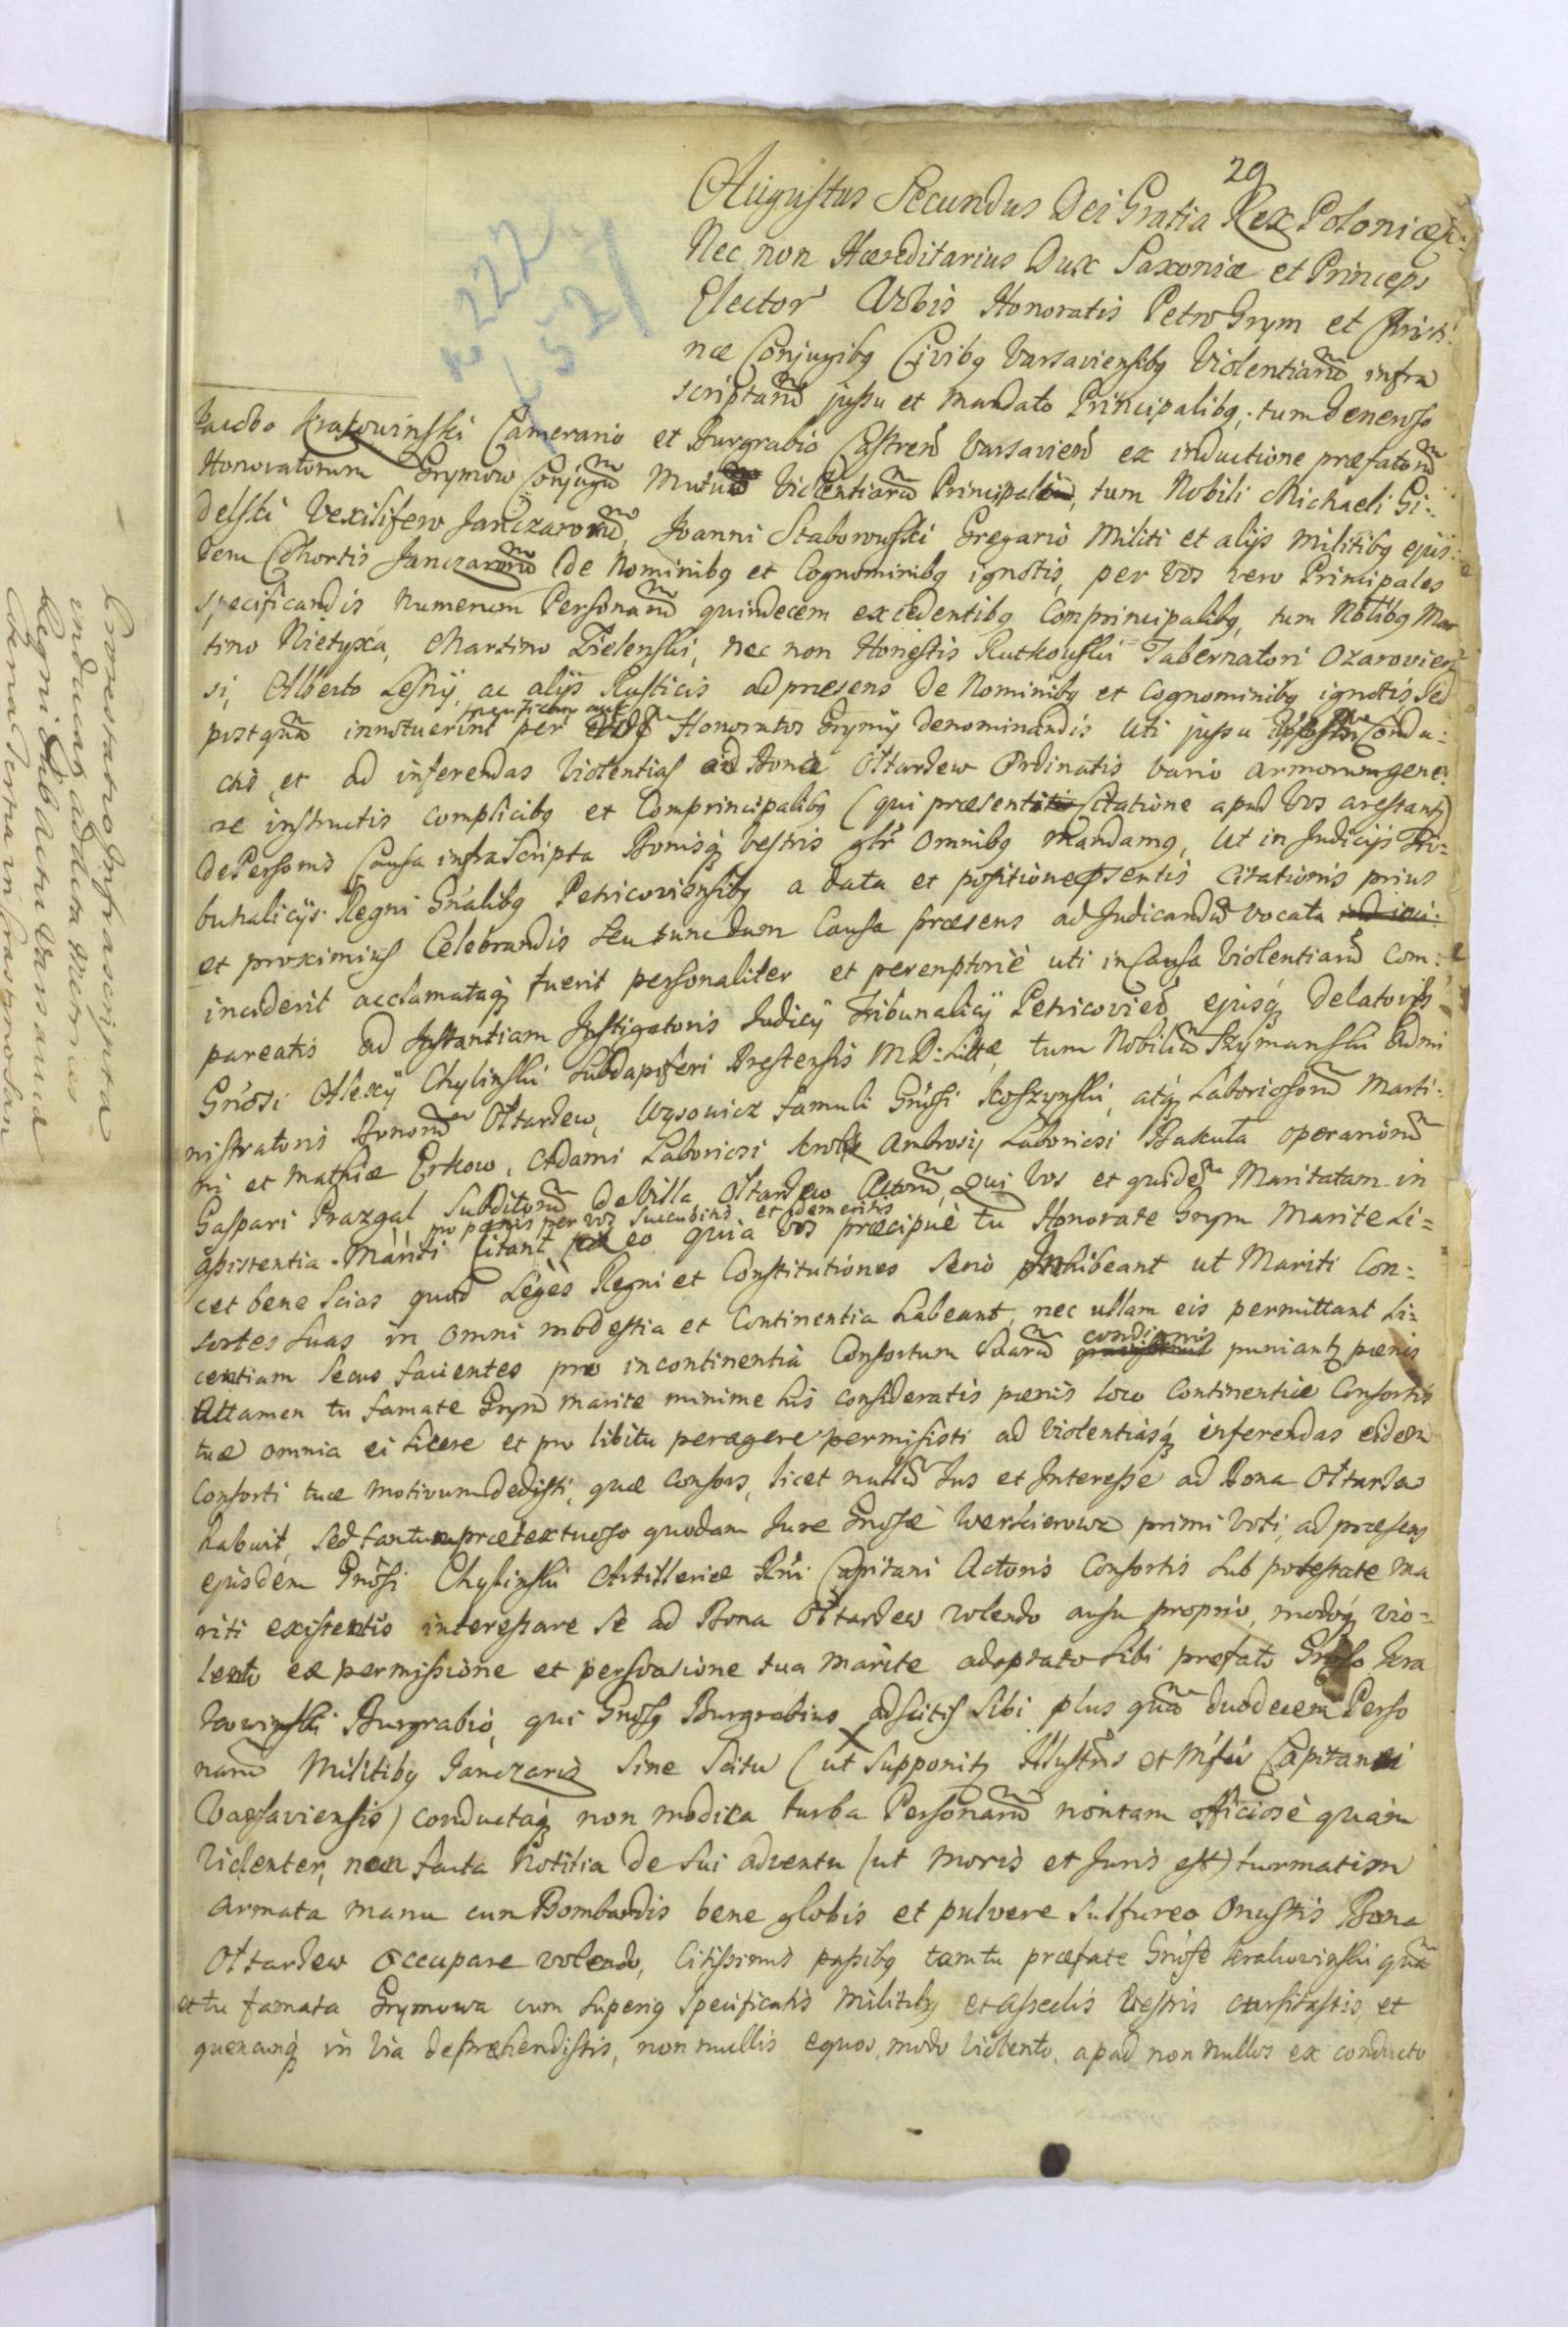 29
Augustus Secundus Dei Gratia Rex Poloniæ
Nec non Hæreditarius Dux Saxoniæ et Princeps
Elector Vobis Honoratis Petro Grym et Christi:
næ Conjugibq Civibq Varsaviensibq Violentiarũ infra
scriptarũ jussu et mandato Principalibq, tum Generoso
Jacobo Krakowinski Camerario et Burgrabio Castreñ Varsavieñ ex inductione præfatorũ
Honoratorum Grymow Conjugũ Violentiarũ Principaliũ, tum Nobili Michaeli Gi:
delski Vexilifero Janczarorũ, Joanni Staborowski Gregario Militi et alijs Militibq ejus:
dem Cohortis Janczarorũ de Nominibq et Cognominibq ignotis, per Vos vero Principales
specificandis numerum Personarũ quindecem excedentibq Comprincipalibq, tum Nobibq Mar
tino Nietyxa, Martino Zielenski, nec non Honestis Rutkowski Tabernatori Ozarovien
si, Alberto Lesny, ac alijs Rusticis ad præsens de Nominibq et Cognominibq ignotis, sed
postquã innotuerint per Honoratos Grymy denominandis uti jussu Condu:
ctis, et ad inferendas Violentias ad Bona Ołtarzew Ordinatis vario armorum gene:
re instructis complicibq et Comprincipalibq (qui præsenti Citatione apud Vos arestantq)
de Personis Causa infrascripta Bonisq vestris glr omnibq mandamq, ut in Judicijs Tri:
bunalicijs Regni Gnalibq Petricoviensibq a data et positione psentis Citationis prius
et proximius Celebrandis seu tunc dum Causa præsens ad Judicandũ vocata
inciderit acclamataq fuerit personaliter et peremptoriè uti in Causa Violentiarũ Com:
pareatis ad Instantiam Instigatoris Judicij Tribunalicij Petricovieñ ejusq Delatoris
Gnosi Alexij Chylinski Subdapiferi Brestensis M D: Littæ, tum Nobiliũ Szymanski Admi
nistratoris Bonorũ Ołtarzew, Wysowicz famuli Gnosi Roszynski, atq Laboriosorũ Marti:
ni et Mathiæ Erkow, Adami Laboriosi Ambrosij Laboriosi Bakuła operariorũ
Gaspari Prazgal Subditorũ de Villa Ołtarzew Actorũ, Qui Vos et quidẽ Maritatam in
pro pœnis per vos succubitis et demeritis
assistentia Mariti Citant eo quia vos præcipuè tu Honorate Grym Marite Li=
cet bene scias quod Leges Regni et Constitutiones serio Inhibeant ut Mariti Con:
sortes suas in omni modestia et Continentia habeant, nec ullam eis permittant Li=
centiam secus facientes pro incontinentia Consortum suarũ condignis puniantq pœnis
Attamen tu famate Grym marite minime his consideratis pœnis loco Continentiæ Consortis
tuæ omnia ei licere et pro libitu peragere permisisti ad Violentiasq inferendas eidem
Consorti tuæ motivum dedisti, quæ Consors, licet nullũ Jus et Interesse ad Bona Ołtarzew
habuit, sed tantum prætextuoso quodam Jure Gnosæ Werkierowa primi Voti, ad præsens
ejusdem Gnosi Chylinski Artilleriæ Rni Capitani Actoris Consortis sub potestate ma
riti existentis interessare se ad Bona Ołtarzew volendo ausu proprio, modoq vio=
lento ex permissione et persvasione tua marite adaptato sibi prefato Gnoso Kra
kowinski Burgrabio, qui Gnosq Burgrabius adscitis sibi plus quã duodecem Perso
narũ Militibq Janczaris sine scitu (ut supponitq Illustris et Mfci Capitanei
Varsaviensis) conductaq non modica turba Personarũ non tam officiosè quàm
Violenter, non facta Notitia de sui adventu (ut moris et Juris est) turmatim
armata manu cum Bombardis bene globis et pulvere sulfureo Onustis Bona
Ołtarzew occupare volendo, Citissimis passibq tam tu præfate Gnose Krakowinski quã
et tu famata Grymowa cum superiq specificatis Militibq et asseclis Vestris cursitastis, et
quencunq in via depræhendistis, non nullis equos modo Violento, apud non nullos ex conducto
Protestatio infrascripta